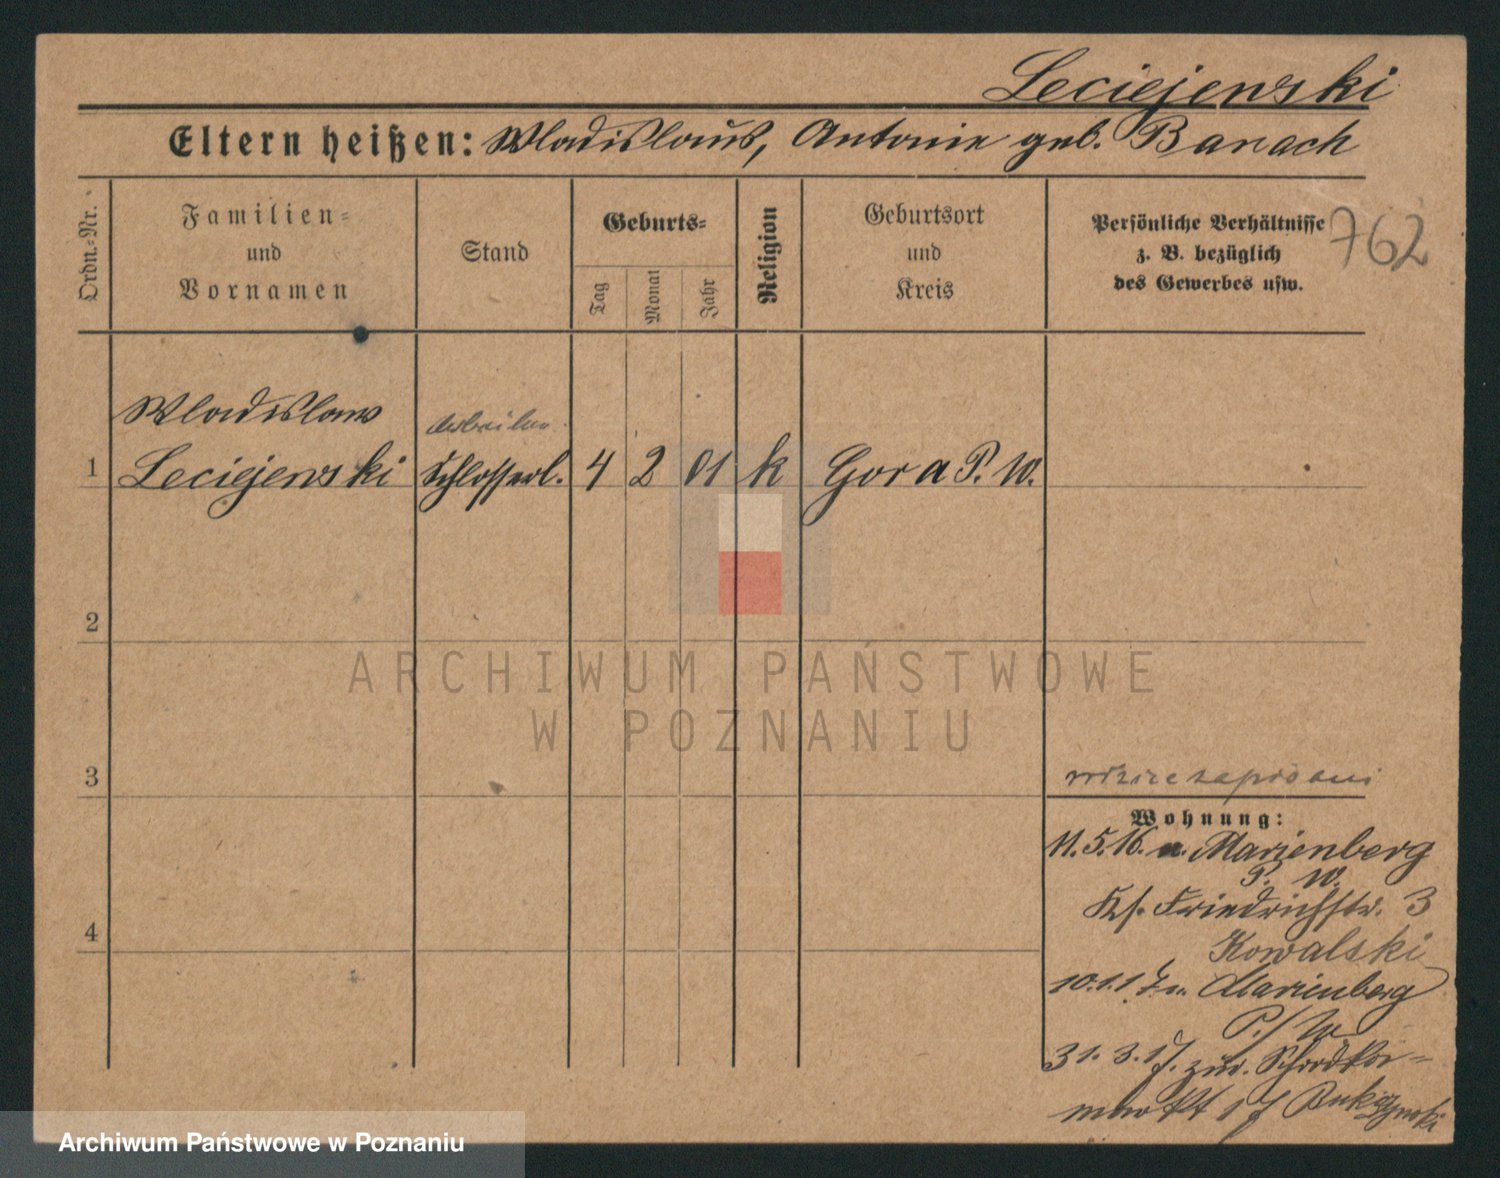 Leciejewski
Eltern heißen: Wladislaus, Antonie geb. Banach
Ordn.=Nr.
Familien=
und
Vornamen
Stand
Geburts=
Tag
Monat
Jahr
Religion
Geburtsort
und
Kreis
Persönliche Verhältnisse
z. B. bezüglich
des Gewerbes usw.
762
Wladislaus
1 Leciejewski Schlosserl. 4 2 01 k Gora P. W.
Arbeiter
2
ARCHIWUM PAŃSTWOWE
W POZNANIU
3
Wohnung:
11.5.16. n. Marienberg
P. W.
Friedrichstr. 3
Kowalski
4
10.1.17 n. Marienberg
P./W
31.3.17. zur.
markt 17
Archiwum Państwowe w Poznaniu